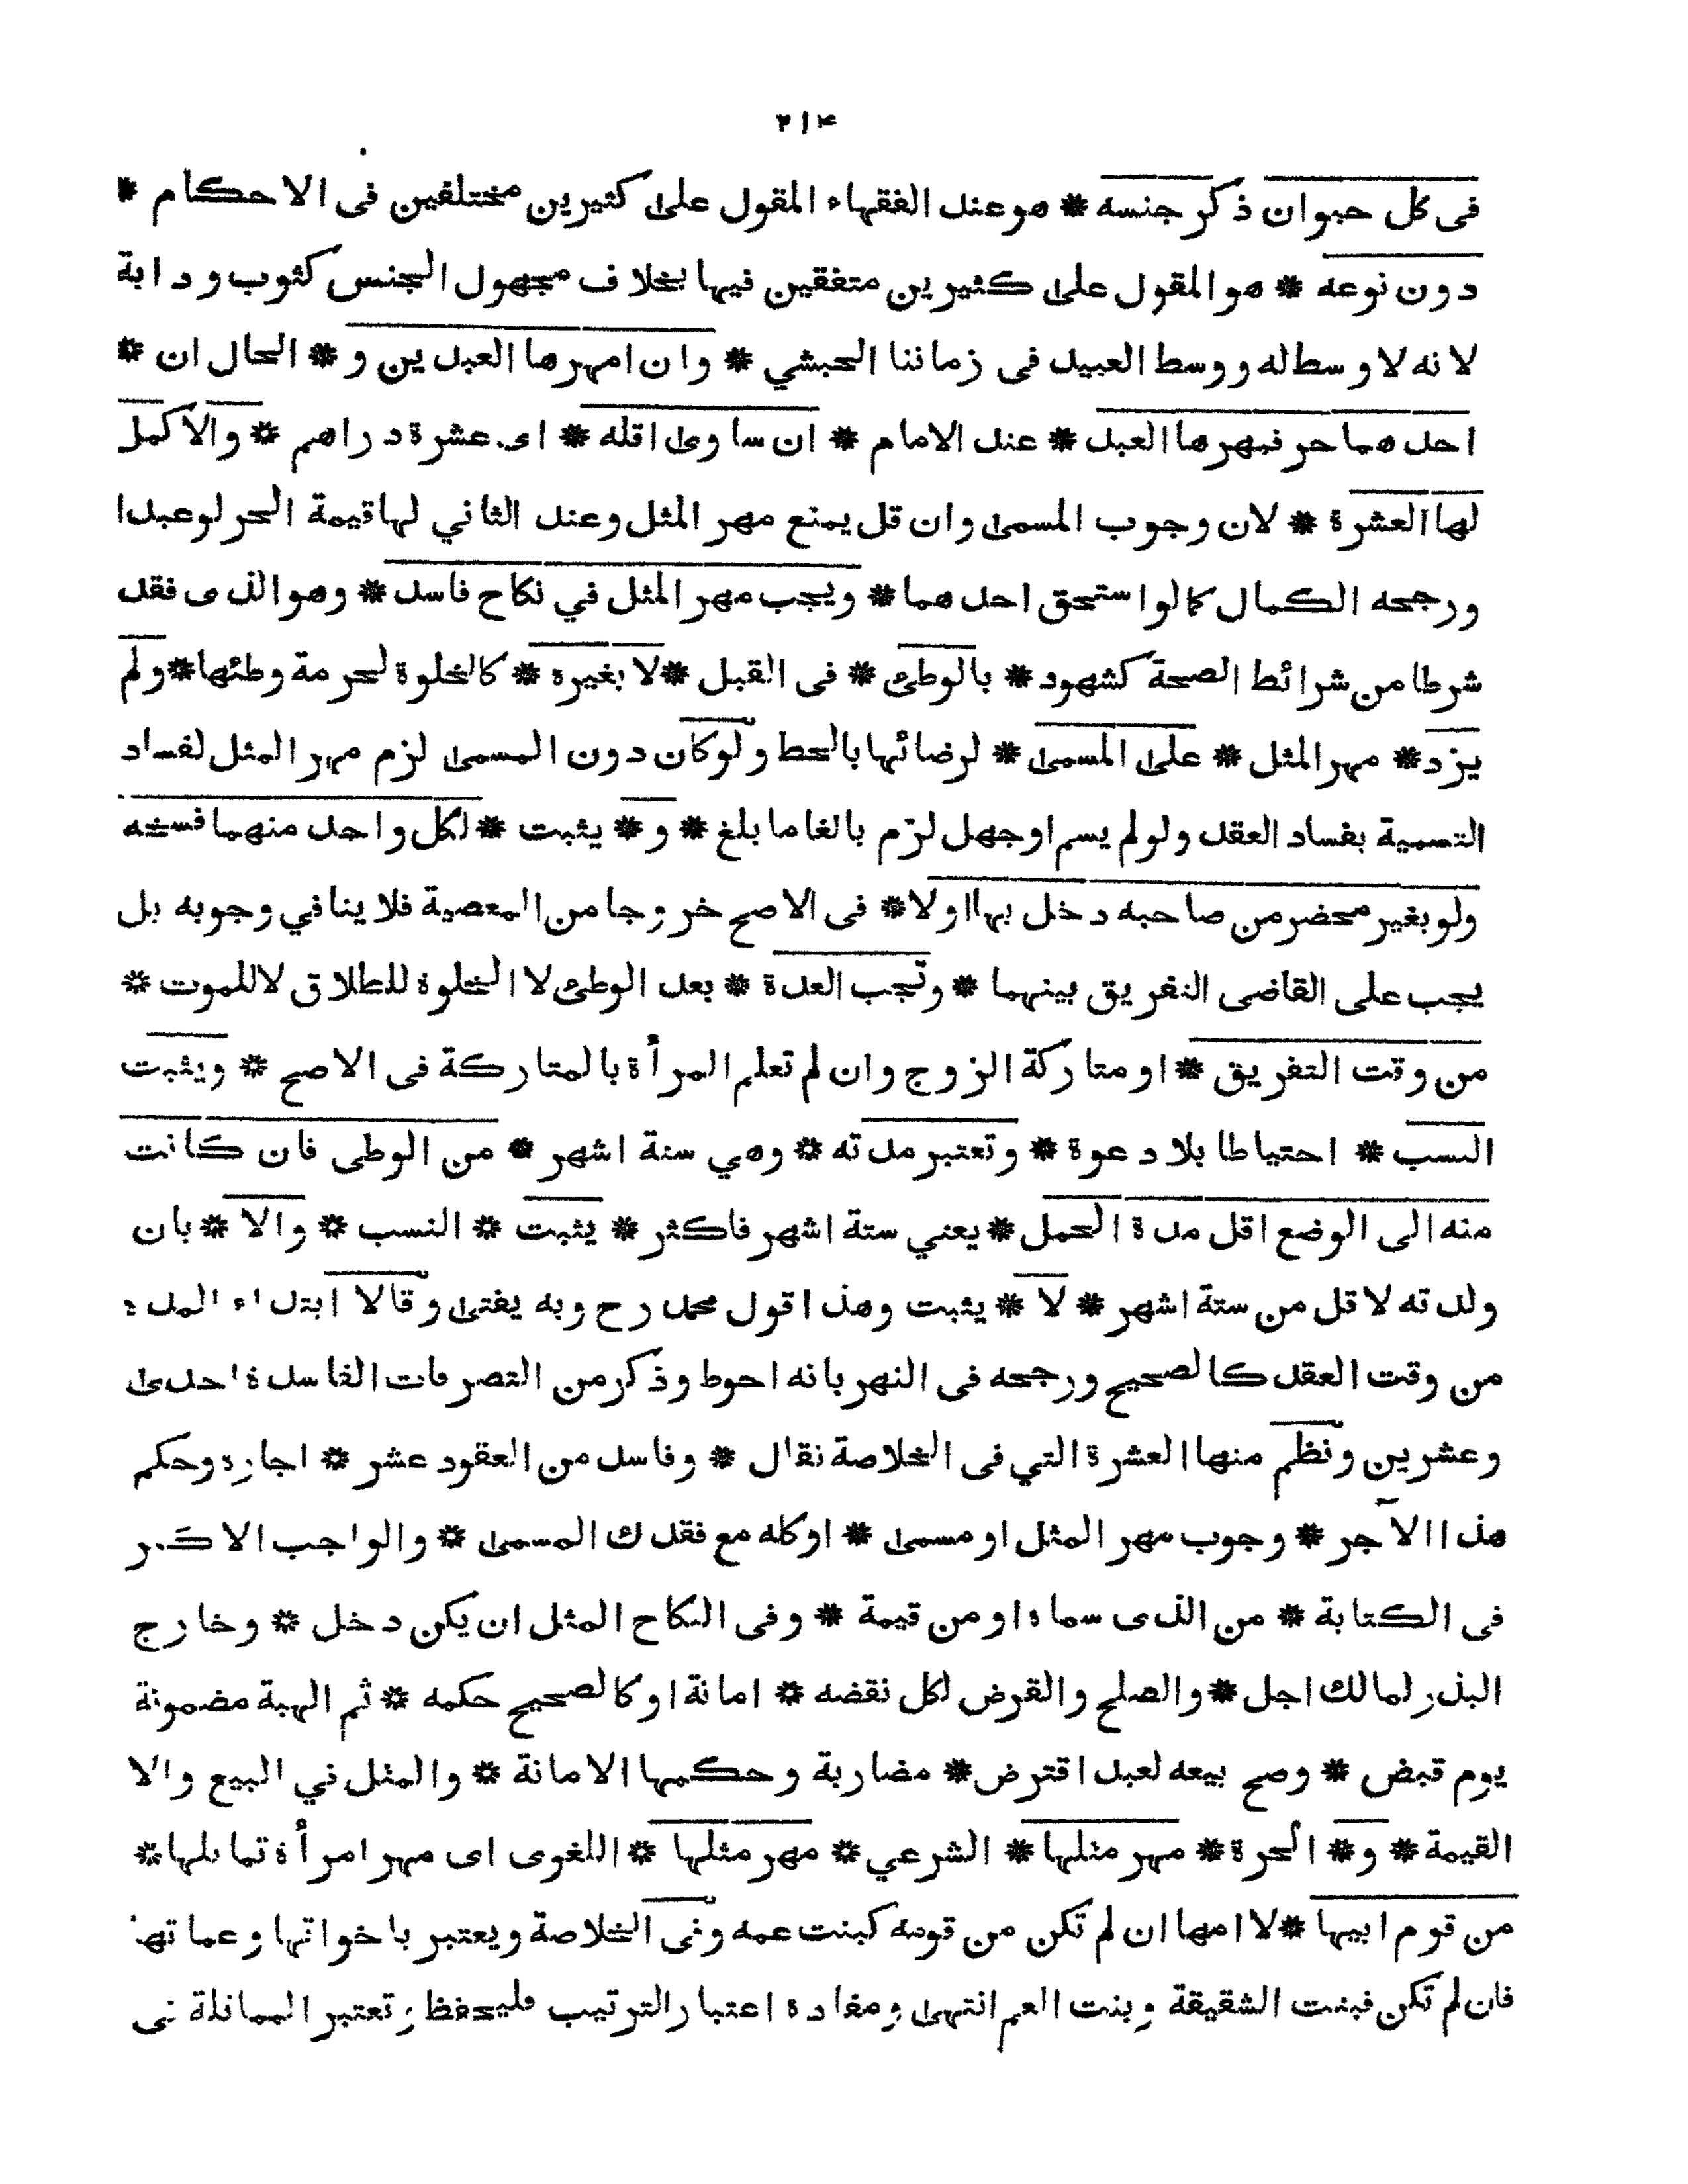 ٢١۴
فى كل حيوان ذكر جنسه * هو عند الفقهاء المقول على كثيرين مختلفين فى الاحكام *
دون نوعه * هو المقول على كثيرين متفقين فيها بخلاف مجهول الجنس كثوب ودابة
لانه لا وسط له ووسط العبيد فى زماننا الحبشي * وان امهرها العبدين و * الحال ان *
احدهما حر فمهرها العبد * عند الامام * ان ساوى اقله * اى عشرة دراهم * والا كمل
لها العشرة * لان وجوب المسمى وان قل يمنع مهر المثل وعند الثاني لها قيمة الحر لو عبدا
ورجحه الكمال كما لو استحق احدهما * ويجب مهر المثل في نكاح فاسد * وهو الذى فقد
شرطا من شرائط الصحة كشهود * بالوطئ * فى القبل * لا بغيره * كالخلوة لحرمة وطئها * ولم
يزد * مهر المثل * على المسمى * لرضائها بالحط ولو كان دون المسمى لزم مهر المثل لفساد
التسمية بفساد العقد ولو لم يسم او جهل لزم بالغا ما بلغ * و * يثبت * لكل واحد منهما فسخه
ولو بغير محضر من صاحبه دخل بها او لا * فى الاصح خروجا من المعصية فلا ينافي وجوبه بل
يجب على القاضى التفريق بينهما * وتجب العدة * بعد الوطئ لا الخلوة للطلاق لا للموت *
من وقت التفريق * او متاركة الزوج وان لم تعلم المرأة بالمتاركة فى الاصح * ويثبت
النسب * احتياطا بلا دعوة * وتعتبر مدته * وهي ستة اشهر * من الوطى فان كانت
منه الى الوضع اقل مدة الحمل * يعني ستة اشهر فاكثر * يثبت * النسب * والا * بان
ولدته لاقل من ستة اشهر * لا * يثبت وهذا قول محمد رح وبه يفتى وقالا ابتداء المدة
من وقت العقد كالصحيح ورجحه فى النهر بانه احوط وذكر من التصرفات الفاسدة احدى
وعشرين ونظم منها العشرة التي فى الخلاصة نقال * وفاسد من العقود عشر * اجاره وحكم
هذا الآجر * وجوب مهر المثل او مسمى * او كله مع فقدك المسمى * والواجب الاكبر
فى الكتابة * من الذى سماه او من قيمة * وفى النكاح المثل ان يكن دخل * وخارج
البذر لمالك اجل * والصلح والقرض لكل نقضه * امانة او كالصحيح حكمه * ثم الهبة مضمونة
يوم قبض * وصح بيعه لعبد اقترض * مضاربة وحكمها الامانة * والمثل في البيع والا
القيمة * و * الحرة * مهر مثلها * الشرعي * مهر مثلها * اللغوى اى مهر امرأة تماثلها *
من قوم ابيها * لا امها ان لم تكن من قومه كبنت عمه وفى الخلاصة ويعتبر باخواتها وعماتها
فان لم تكن فبنت الشقيقة وبنت العم انتهى ومفاده اعتبار الترتيب فليحفظ وتعتبر المماثلة فى